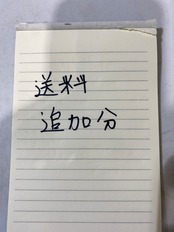 送料
追加分